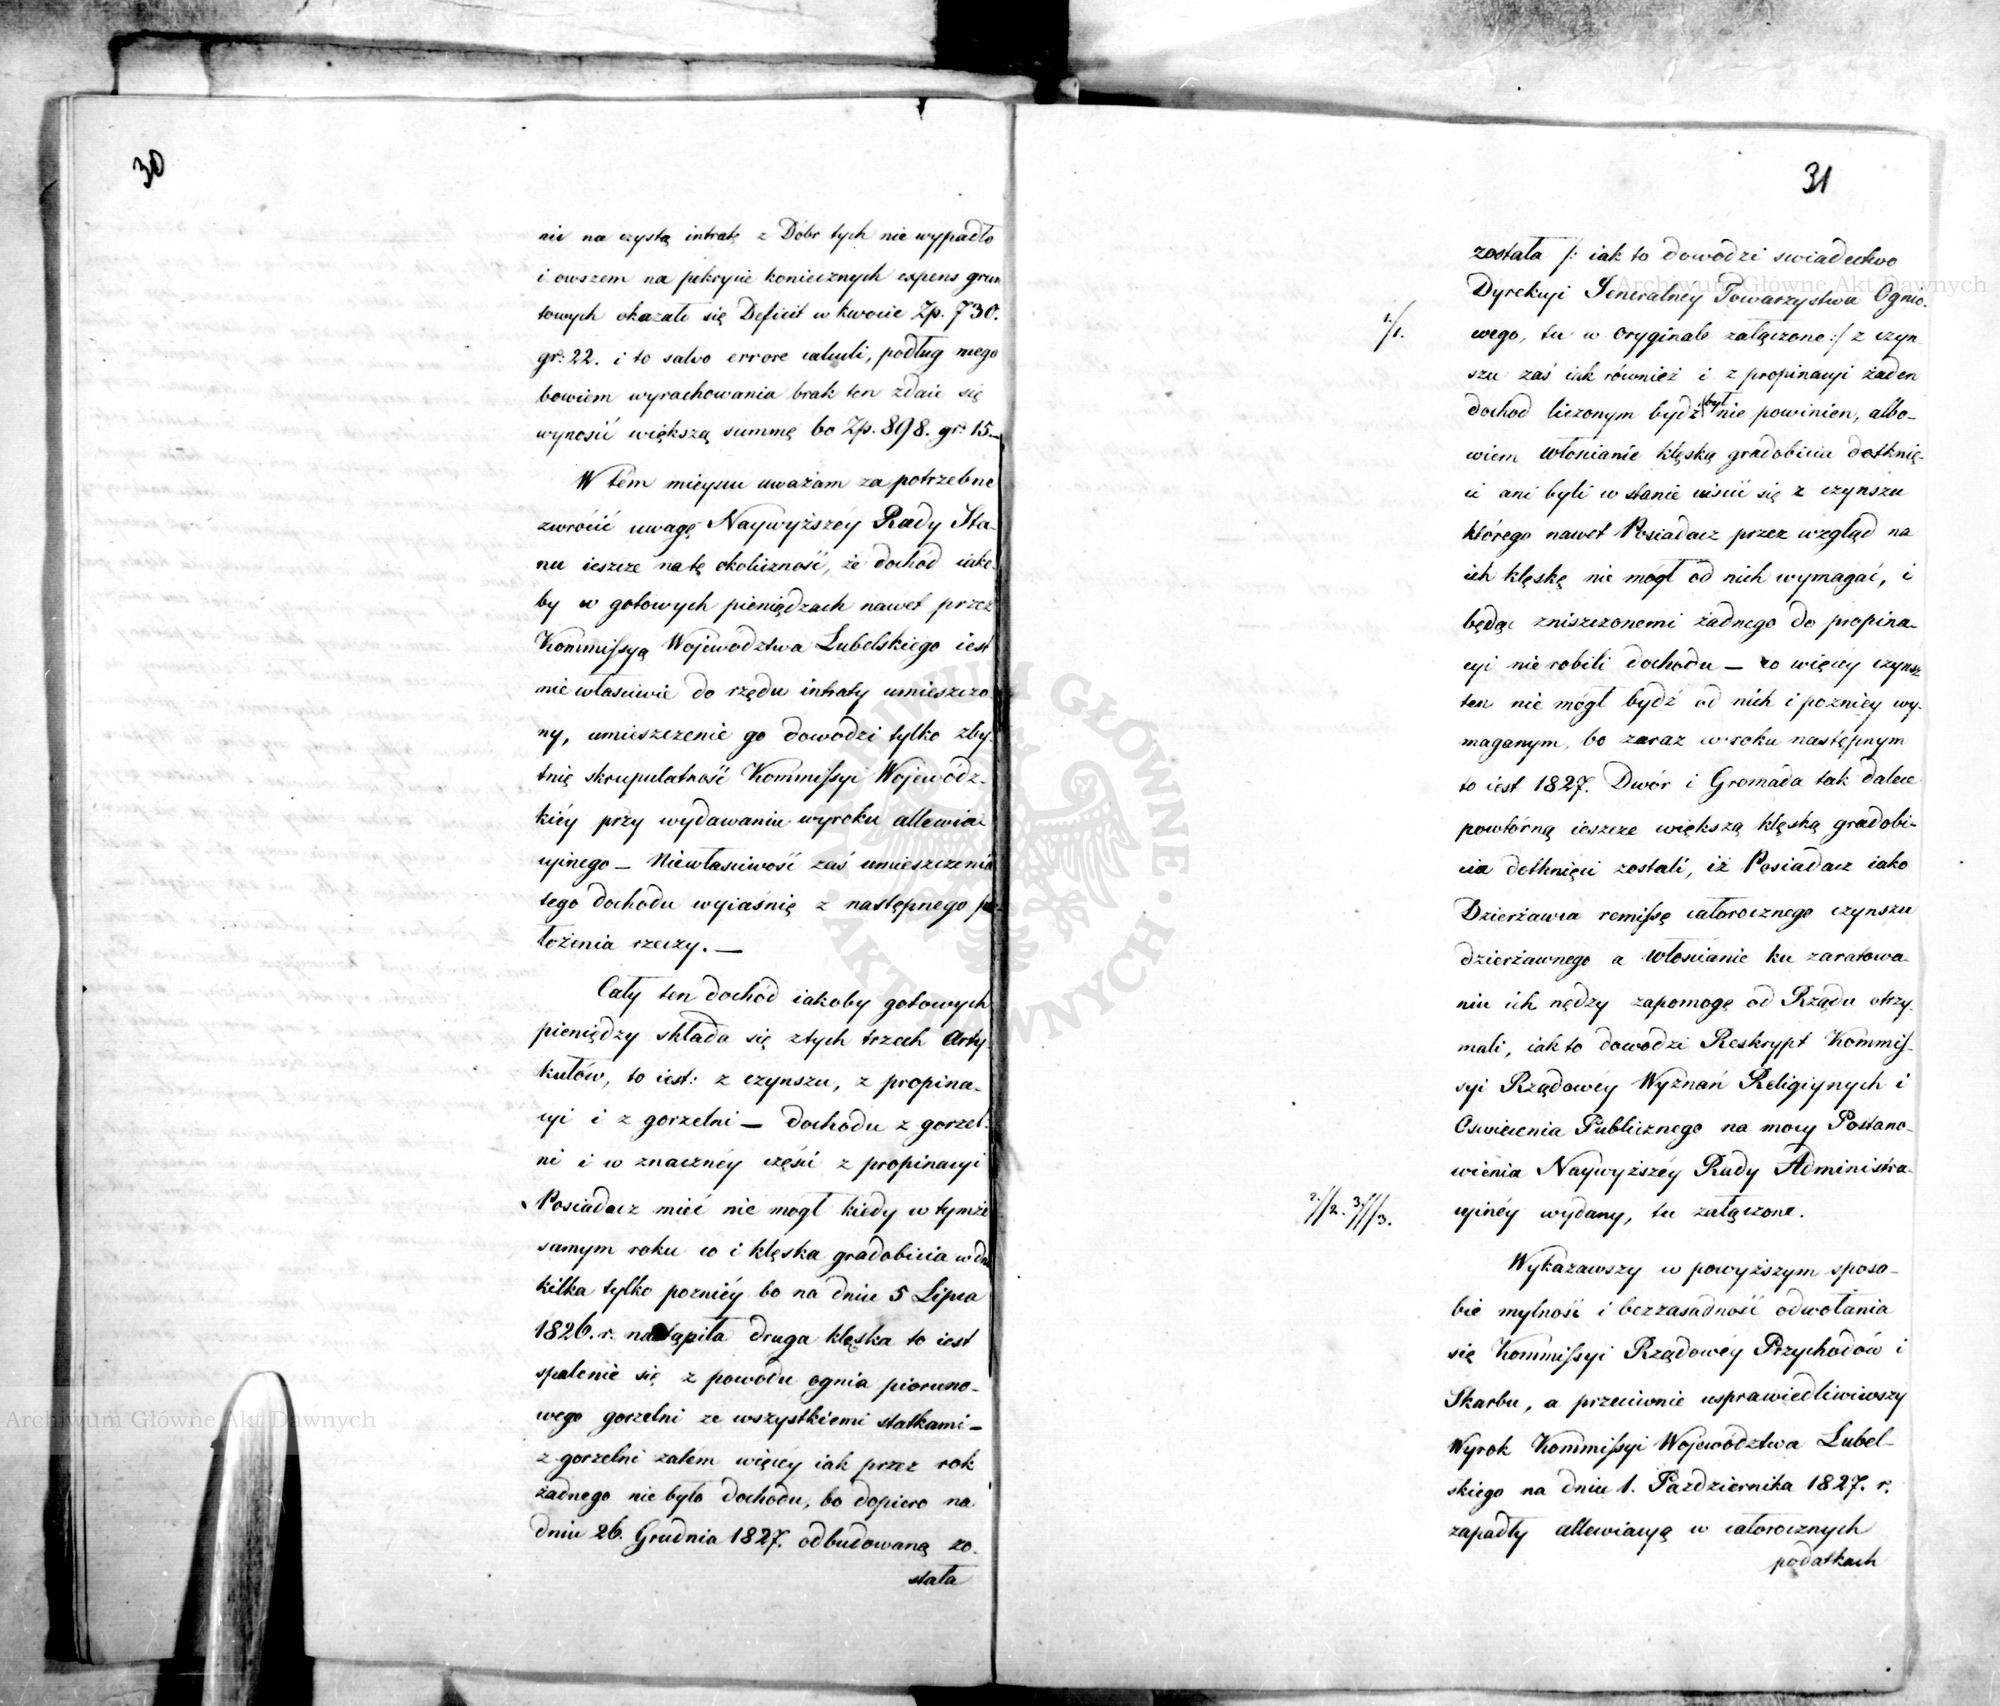 30
nic na czystą intratę z Dóbr tych nie wypadło
i owszem na pokrycie koniecznych expens grun
towych okazało się Deficit w kwocie Zp. 730.
gr. 22. i to salvo errore calculi, podług mego
bowiem wyrachowania brak ten zdaie się
wynosić większą summę bo Zp. 898. gr. 15.—
W tem mieyscu uważam za potrzebne
zwrócić uwagę Naywyższéy Rady Sta-
nu ieszcze na tę okoliczność, że dochód iako-
by w gotowych pieniądzach nawet przez
Kommissyą Województwa Lubelskiego iest
niewłaściwie do rzędu intraty umieszczo
ny, umieszczenie go dowodzi tylko zby-
tnię skrupulatność Kommissyi Wojewódz-
kiéy przy wydawaniu wyroku allewia-
cyinego — Niewłaściwość zaś umieszczenia
tego dochodu wyiaśnię z następnego po-
łożenia rzeczy. —
Cały ten dochód iakoby gotowych
pieniędzy składa się z tych trzech Arty-
kułów, to iest: z czynszu, z propina-
cyi i z gorzelni — dochodu z gorzel-
ni i w znacznéy części z propinacyi
Posiadacz mieć nie mógł kiedy w tymże
samym roku co i klęska gradobicia w dni
kilka tylko pozniéy bo na dniu 5 Lipca
1826. r. nastąpiła druga klęska to iest
spalenie się z powodu ognia pioruno-
wego gorzelni ze wszystkiemi statkami —
z gorzelni zatém więcéy iak przez rok
żadnego nie było dochodu, bo dopiero na
dniu 26. Grudnia 1827. odbudowaną zo-
stała
31
została /: iak to dowodzi swiadectwo
Dyrekcyi Jeneralney Towarzystwa Ognio-
1./1.
wego, tu w Oryginale załączone :/ z czyn
szu zaś iak również i z propinacyi żaden
dochod liczonym bydź był nie powinien, albo-
wiem Włościanie klęską gradobicia dotknię-
ci ani byli w stanie uiscić się z czynszu
którego nawet Posiadacz przez wzgląd na
ich klęskę nie mógł od nich wymagać, i
będąc zniszczonemi żadnego do propina-
cyi nie robili dochodu — co więcéy czynsz
ten nie mógł bydź od nich i pozniéy wy-
maganym, bo zaraz w roku następnym
to iest 1827. Dwór i Gromada tak dalece
powtórną ieszcze większą klęską gradobi-
cia dotknięci zostali, iż Posiadacz iako
Dzierżawca remissę całorocznego czynszu
dzierżawnego a Włościanie ku zaratowa-
niu ich nędzy zapomogę od Rządu otrzy-
mali, iak to dowodzi Reskrypt Kommis-
syi Rządowéy Wyznań Religiynych i
Oswiecenia Publicznego na mocy Postano-
wienia Naywyższéy Rady Administra-
2.//2. 3.///3.
cyinéy wydany, tu załączone.
Wykazawszy w powyższym sposo-
bie mylność i bezzasadność odwołania
się Kommissyi Rządowéy Przychodów i
Skarbu, a przeciwnie usprawiedliwiwszy
Wyrok Kommissyi Województwa Lubel-
skiego na dniu 1. Pazdziernika 1827. r.
zapadły allewiacyą w całorocznych
podatkach
Archiwum Główne Akt Dawnych
Archiwum Główne Akt Dawnych
ARCHIWUM GŁÓWNE · AKT DAWNYCH ·